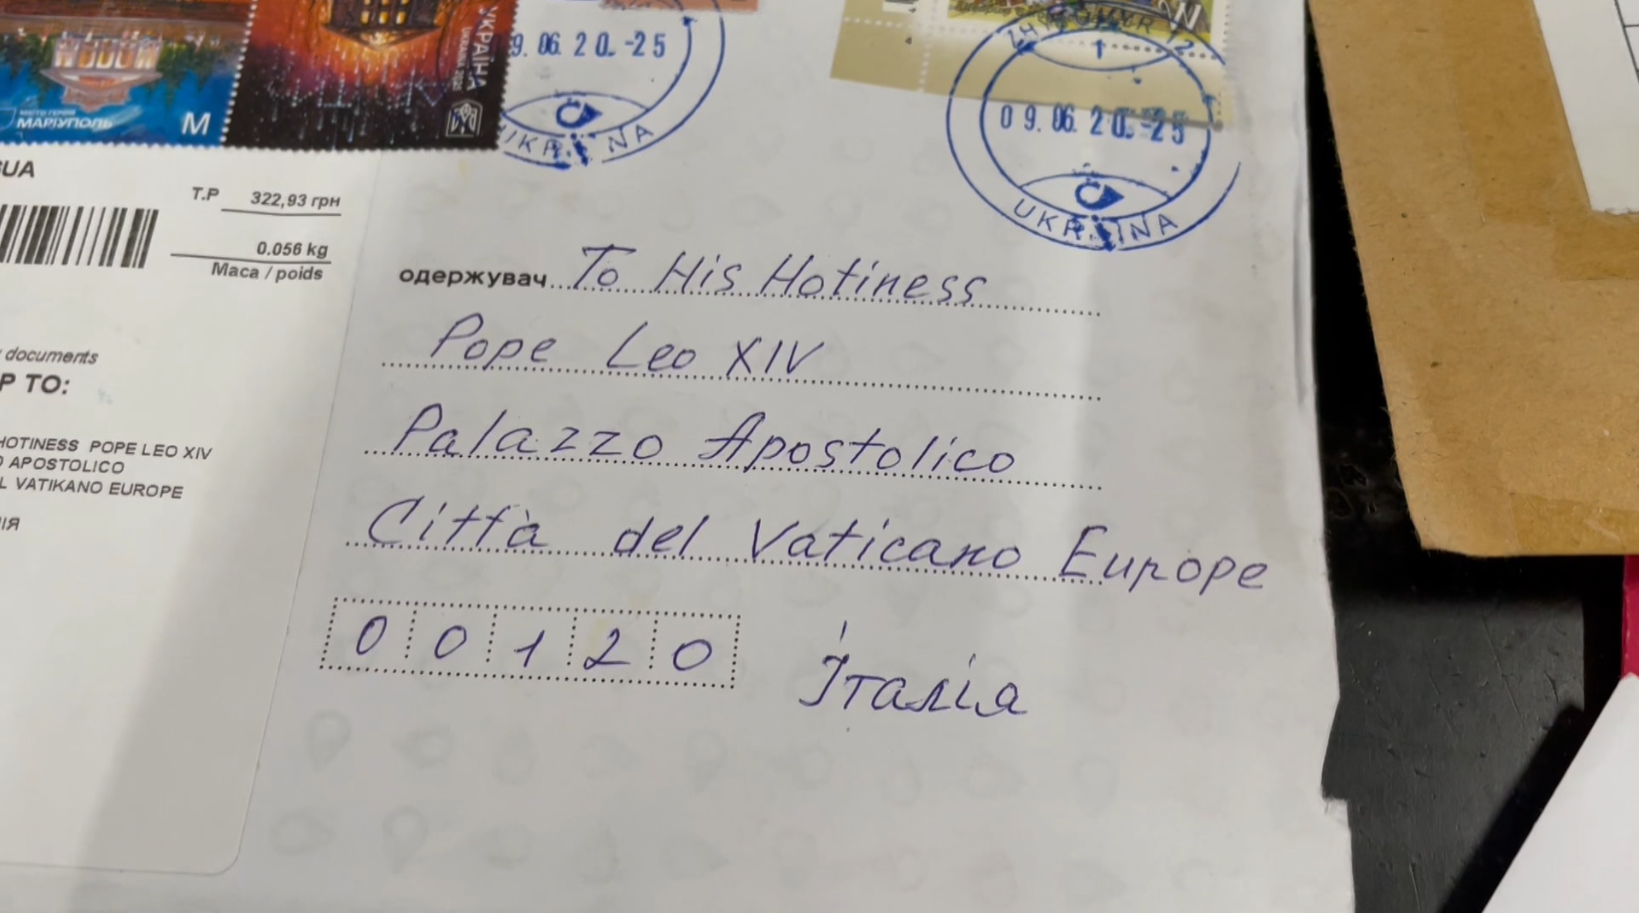 УКРАЇНА
МІСТО ГЕРОЇВ
МАРІУПОЛЬ M
9. 06. 2 0. -25
UKRAINA
4
ZHYTOMYR 12
1
0 9. 06. 2 0. -25
UKRAINA
UA
Т.Р 322,93 грн
0.056 kg
Маса / poids
documents
P TO:
HOTINESS POPE LEO XIV
O APOSTOLICO
L VATIKANO EUROPE
ІЯ
одержувач To His Hotiness
Pope Leo XIV
Palazzo Apostolico
Città del Vaticano Europe
0 0 1 2 0
Італія